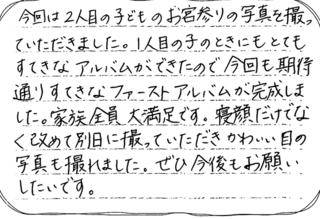 今回は2人目の子どものお宮参りの写真を撮っ
ていただきました。1人目の子のときにもとても
すてきなアルバムができたので今回も期待
通りすてきなファーストアルバムが完成しま
した。家族全員大満足です。寝顔だけでな
く改めて別日に撮っていただきかわいい目の
写真も撮れました。ぜひ今後もお願い
したいです。